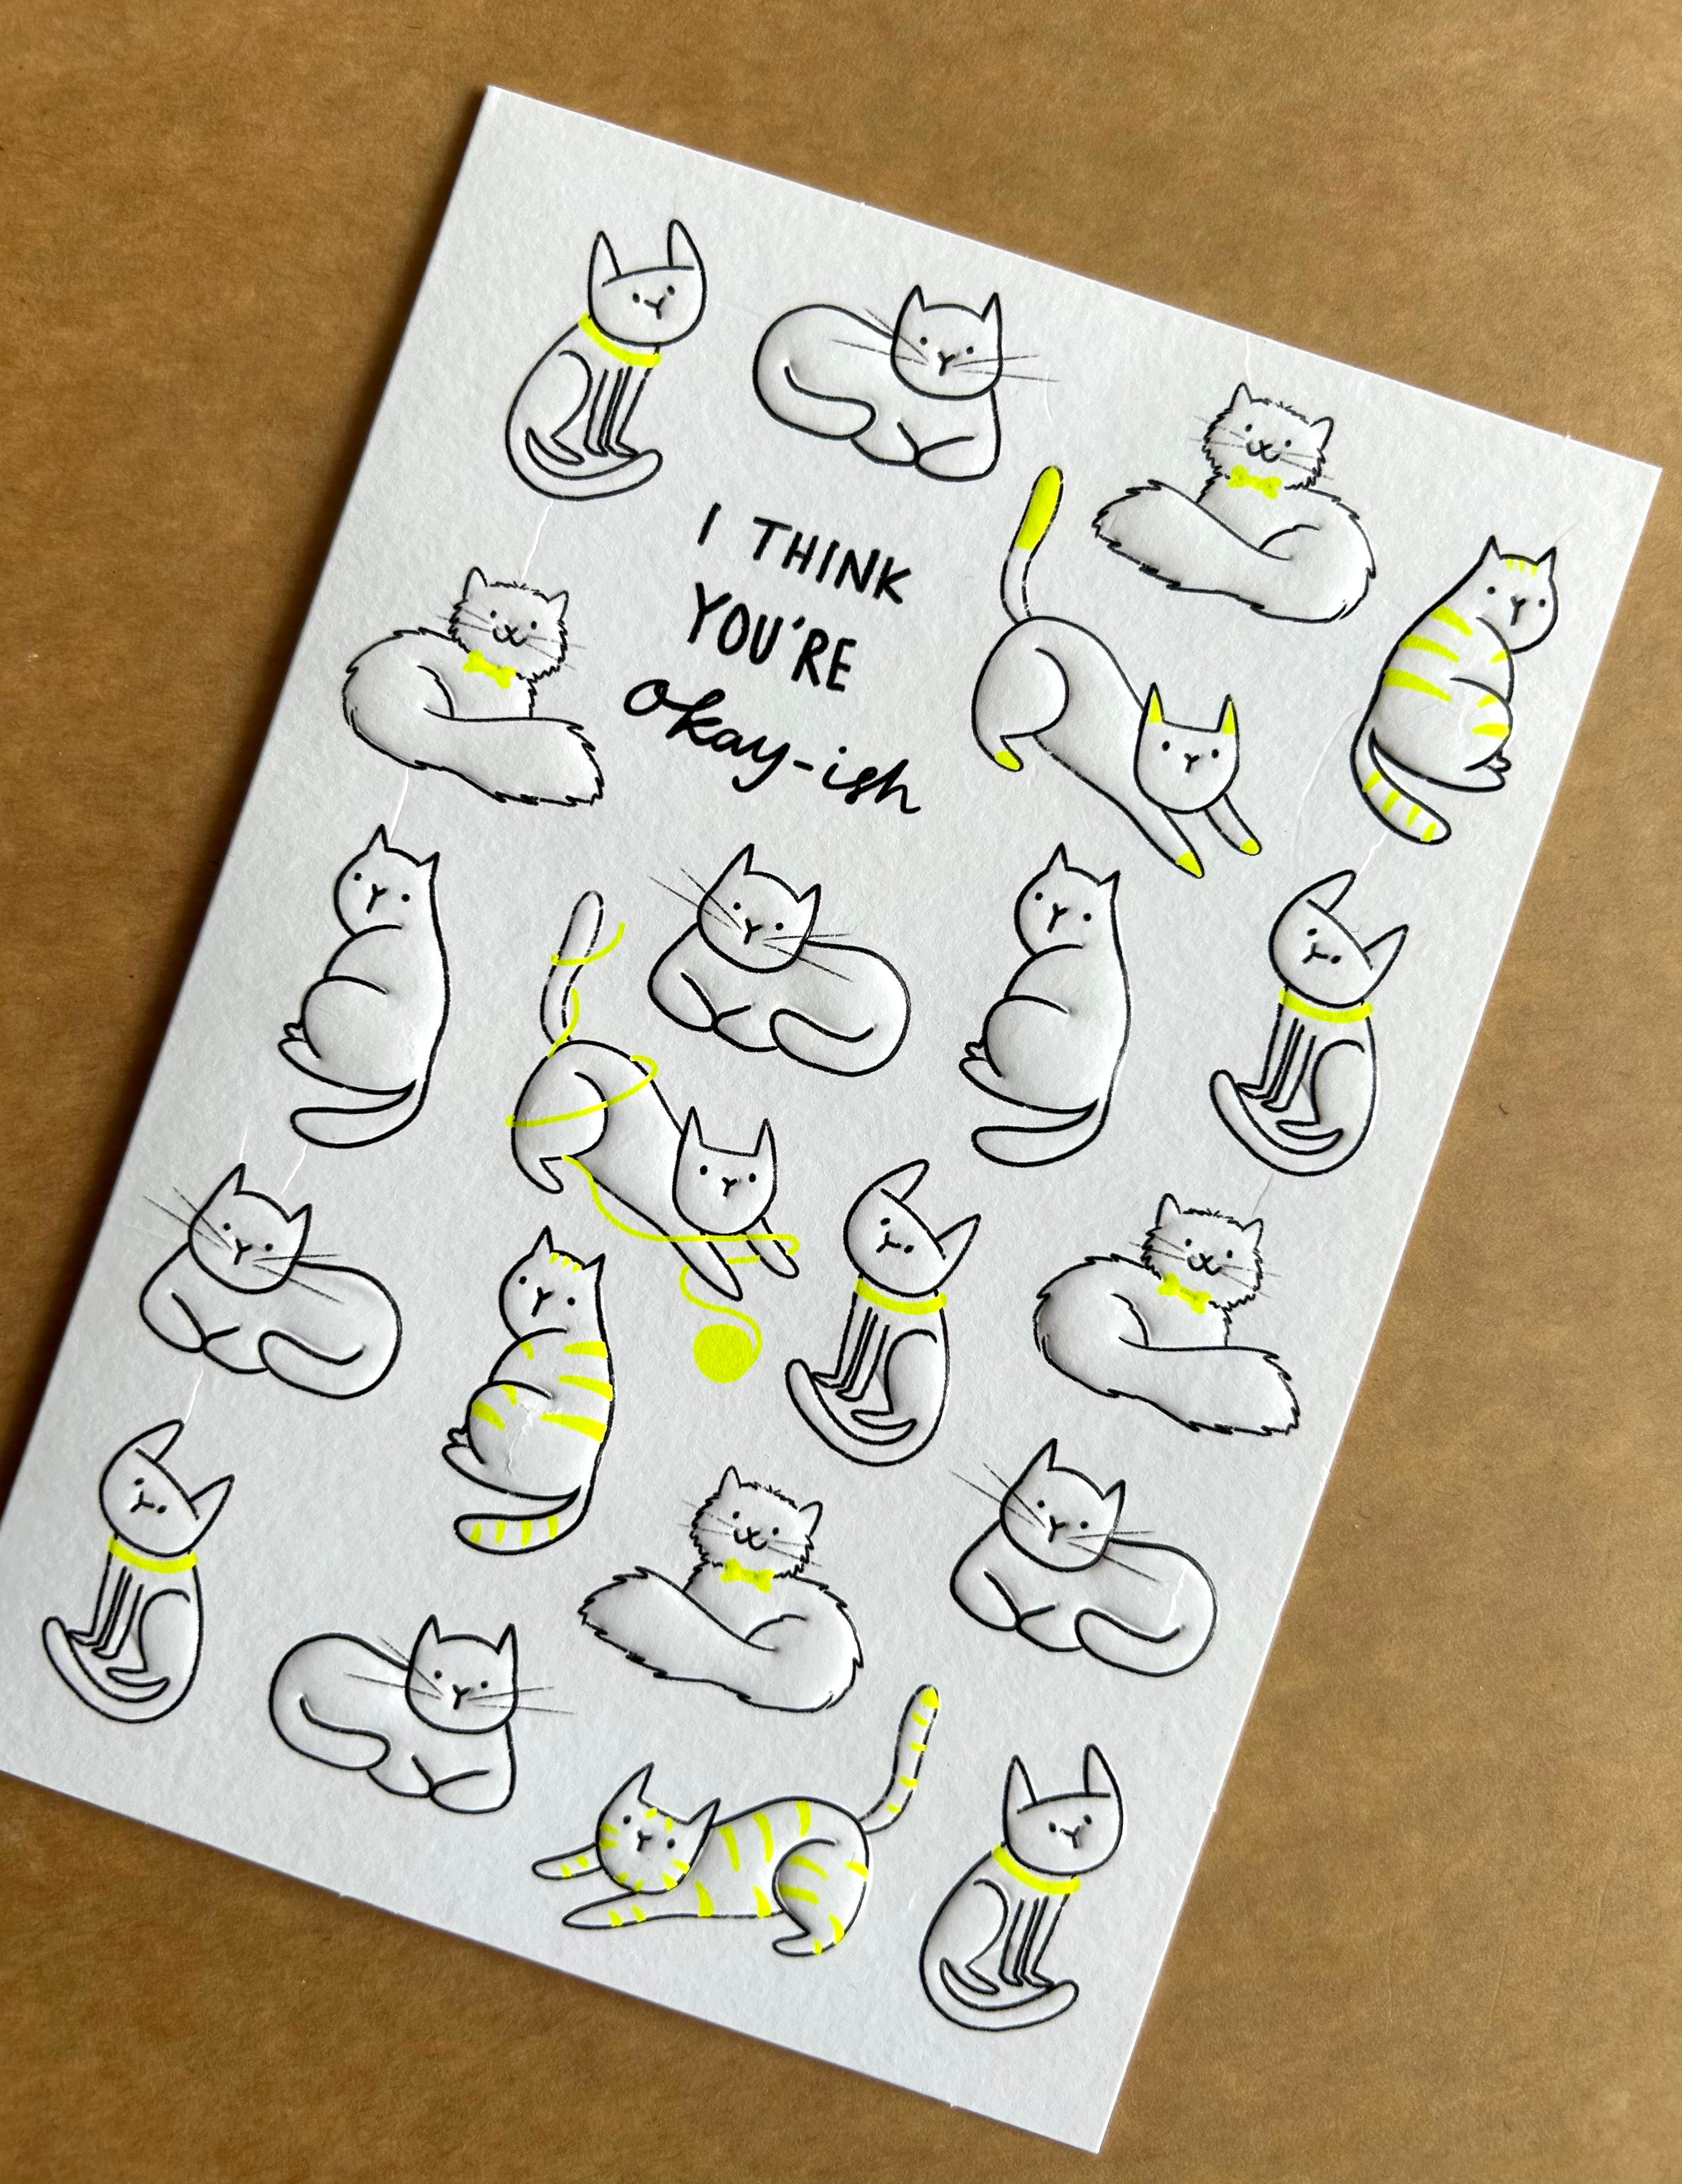 I THINK
YOU'RE
okay-ish